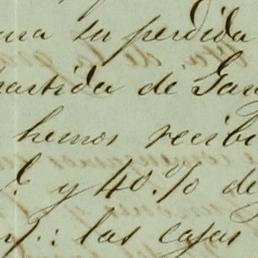 su perdida
partida de
hemos recibi
y 40.% de
las cajas